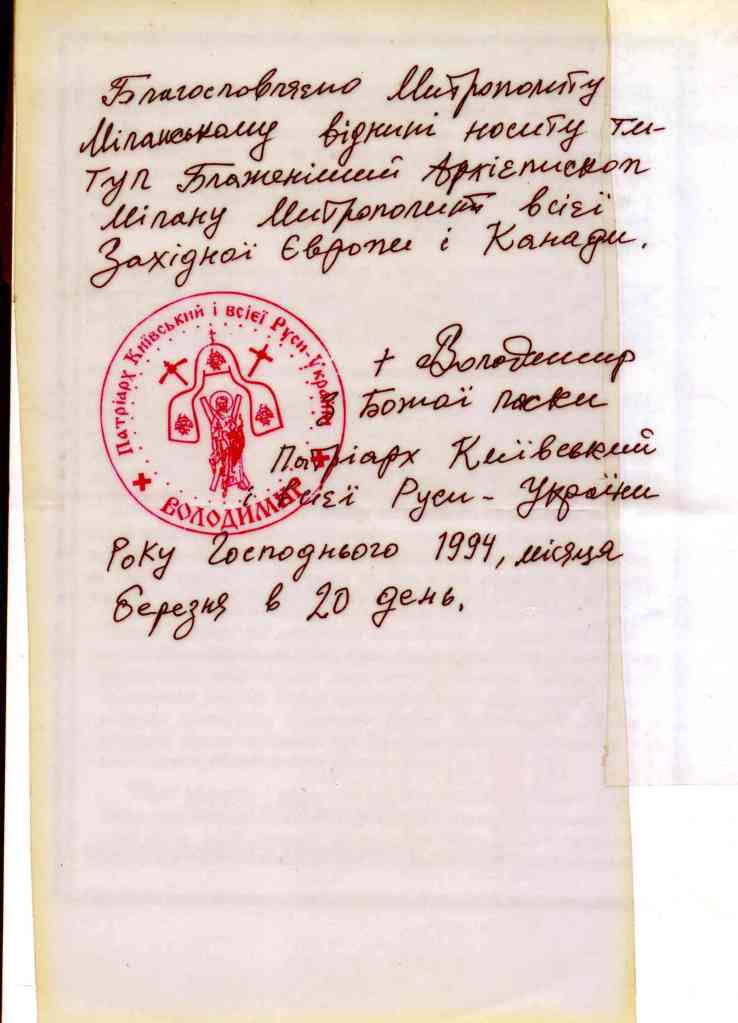 Благословляємо Митрополиту
Міланському віднині носити ти-
тул Блаженіший Архієпископ
Мілану Митрополит всієї
Західної Європи і Канади.
Патріарх Київський і всієї Руси-України
ВОЛОДИМИР
+ Володимир
З Божої ласки
Патріарх Київський
і всієї Руси-України
Року Господнього 1994, місяця
березня в 20 день.